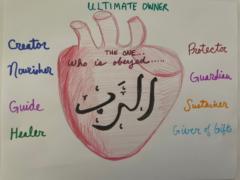 ULTIMATE OWNER
THE ONE...
Who is obeyed.....
الرب
Creator
Nourisher
Guide
Healer
Protector
Guardian
Sustainer
Giver of Gifts